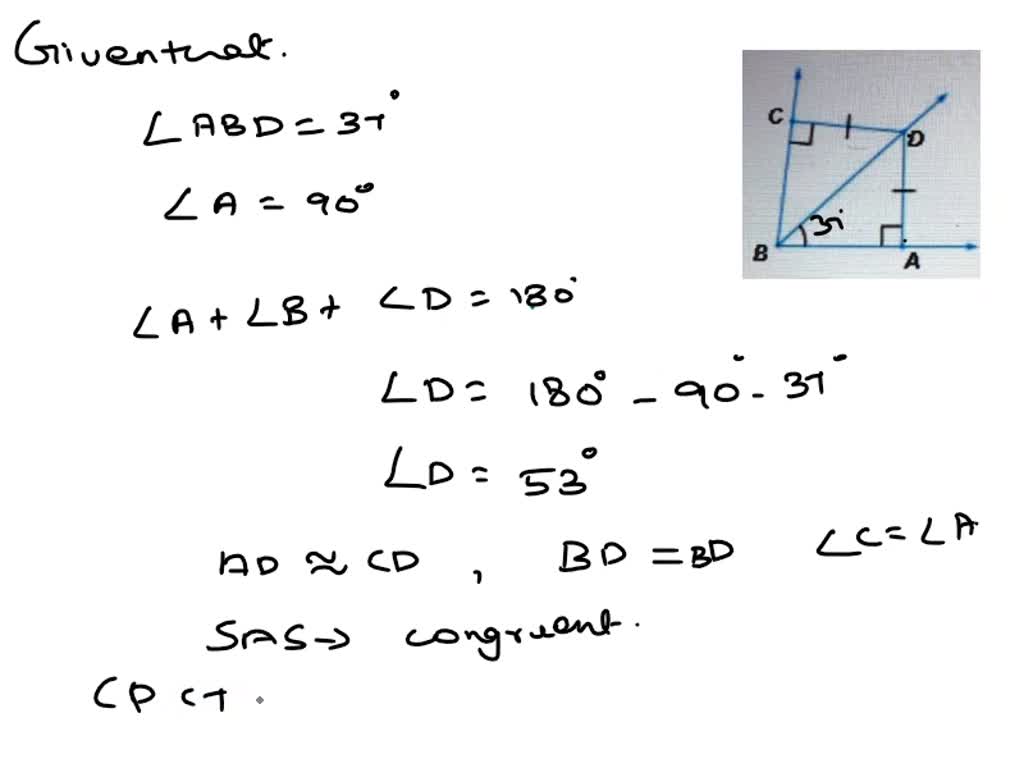 Given that.
∠ABD = 37°
∠A = 90°
∠A + ∠B + ∠D = 180°
∠D = 180° - 90° - 37°
∠D = 53°
AD ≈ CD , BD = BD ∠C = ∠A
SAS → congruent.
CPCT
C
D
37°
B
A